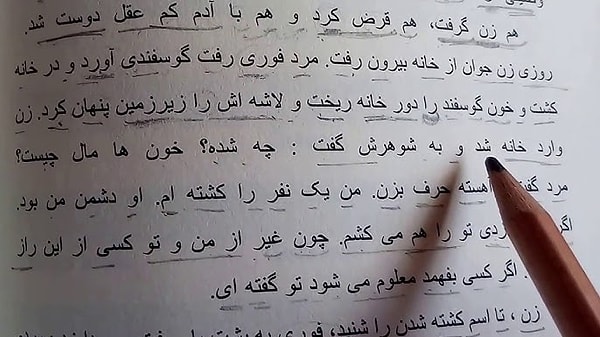 هم زن گرفت، هم قرض کرد و هم با آدم کم عقل دوست شد.
روزی زن جوان از خانه بیرون رفت. مرد فوری رفت گوسفندی آورد و در خانه
کشت و خون گوسفند را دور خانه ریخت و لاشه اش را زیرزمین پنهان کرد. زن
وارد خانه شد و به شوهرش گفت : چه شده؟ خون ها مال چیست؟
مرد گفت آهسته حرف بزن. من یک نفر را کشته ام. او دشمن من بود.
اگر تو را هم می کشم. چون غیر از من و تو کسی از این راز
اگر کسی بفهمد معلوم می شود تو گفته ای.
زن ، تا اسم کشته شدن را شنید، فوری